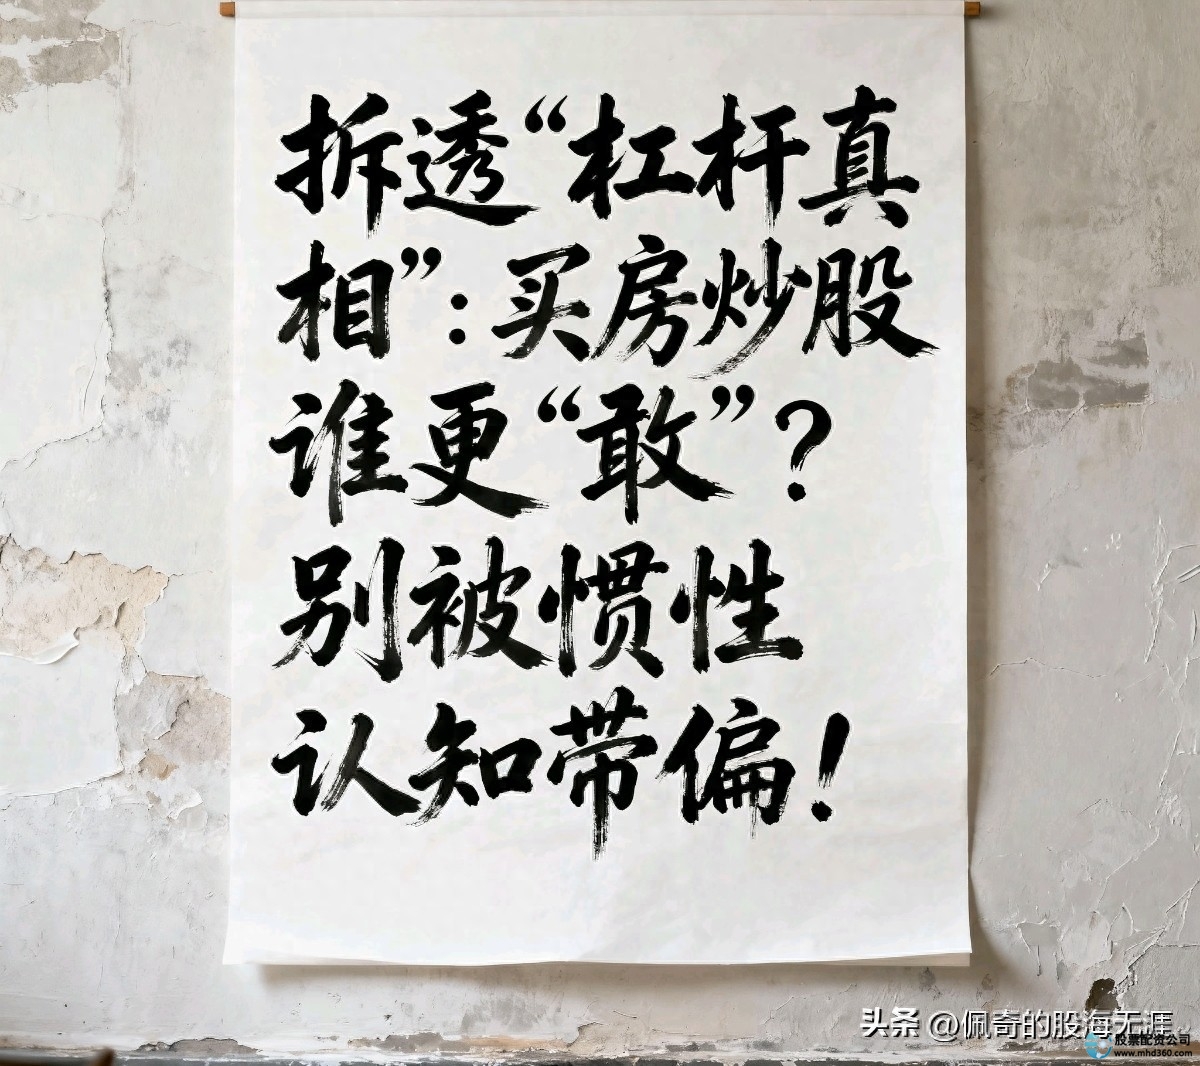 拆透“杠杆真
相”：买房炒股
谁更“敢”？
别被惯性
认知带偏！
头条 @佩奇的股海无涯
股票配资公司
www.mhd360.com